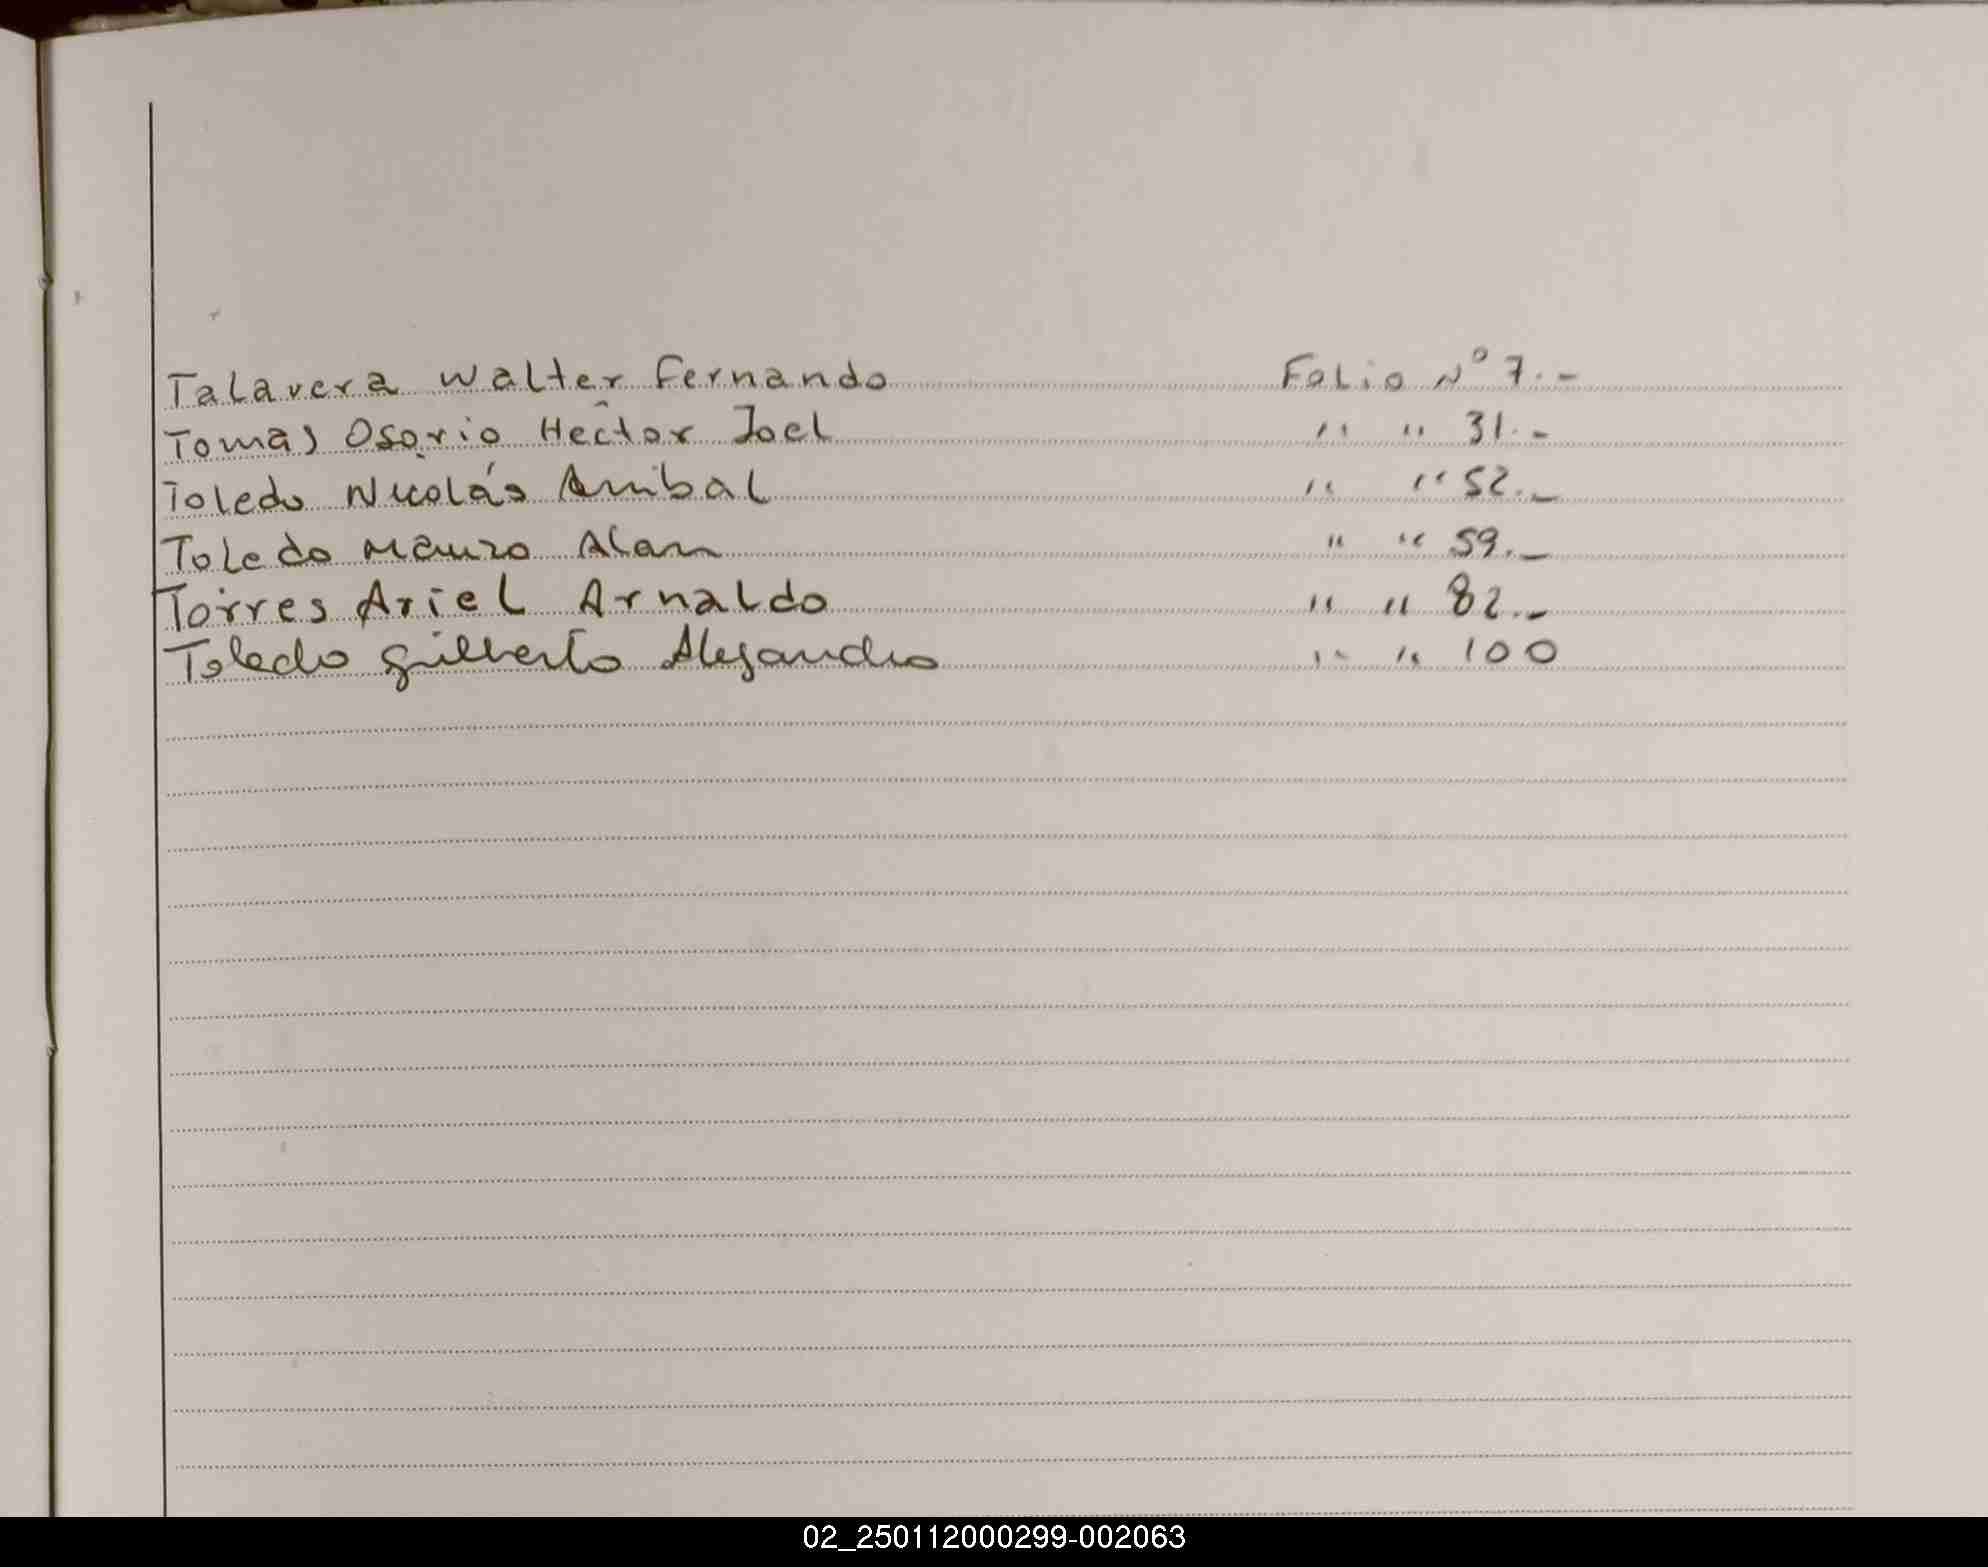 Talavera Walter Fernando Folio Nº 7.-
Tomas Osorio Hector Joel " " 31.-
Toledo Nicolás Anibal " " 52.-
Toledo Mauro Alan " " 59.-
Torres Ariel Arnaldo " " 82.-
Toledo Gilberto Alejandro " " 100
02_250112000299-002063